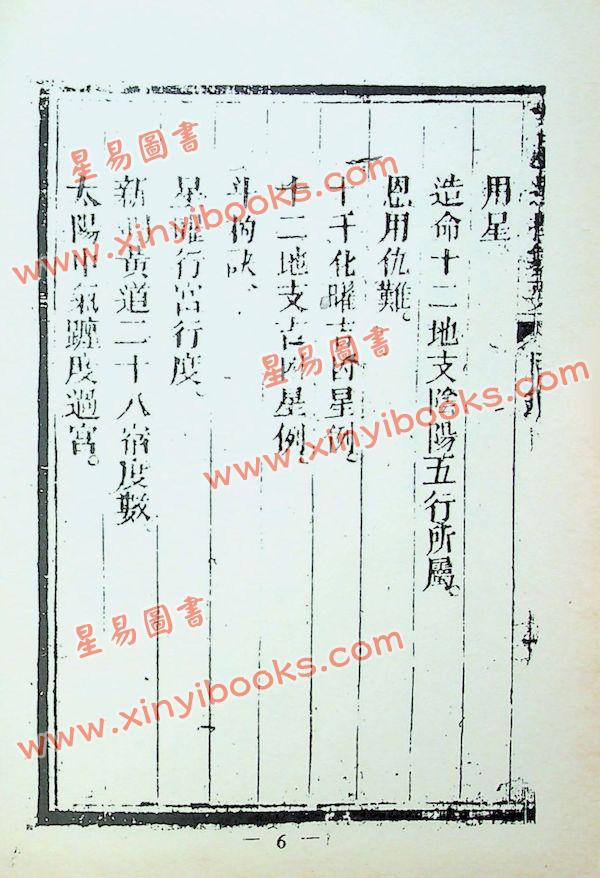 用星
造命十二地支陰陽五行所屬。
恩用仇難。
十干化曜吉凶星例。
十二地支吉凶星例。
斗杓訣、
星曜行宮行度、
黃道二十八宿度數、
太陽中氣躔度過宮。
— 6 —
星易圖書
www.xinyibooks.com
星易圖書
www.xinyibooks.com
星易圖書
www.xinyibooks.com